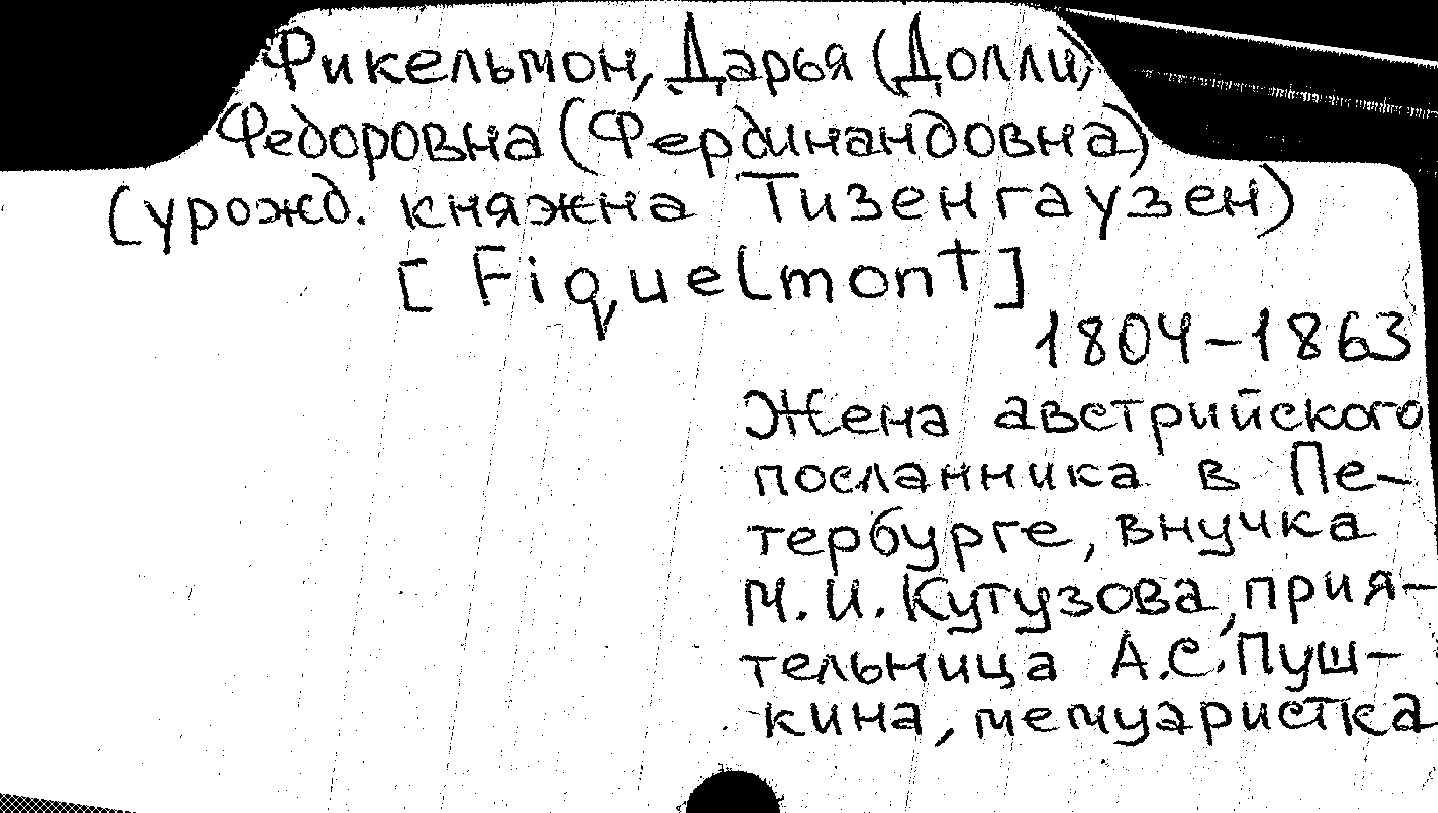 Фикельмон, Дарья (Долли)
Федоровна (Фердинандовна)
(урожд. княжна Тизенгаузен)
[Fiquelmont]
1804-1863
Жена австрийского
посланника в Пе-
тербурге, внучка
М.И. Кутузова, прия-
тельница А.С. Пуш-
кина, мемуаристка